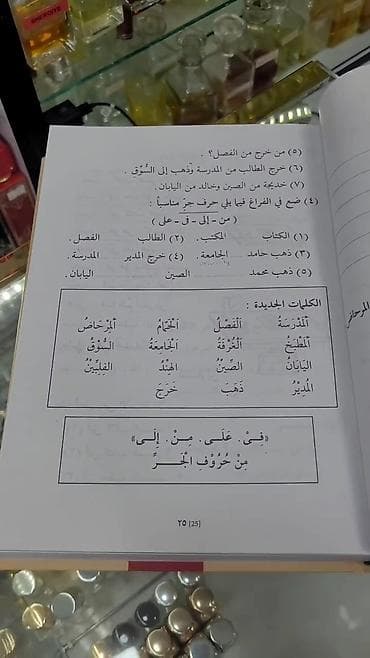 (٥) من خرج من الفصل؟ .
(٦) خرج الطالب من المدرسة وذهب إلى السُّوْقِ .
(٧) خديجة من الصين وخالد من اليابان.
(٤) ضع في الفراغ فيما يلي حرف جرّ مناسباً :
( من ـ إلى ـ في ـ على )
(١) الكتاب ........ المكتب. (٢) الطالب ........ الفصل.
(٣) ذهب حامد ........ الجامعة. (٤) خرج المدير ........ المدرسة.
(٥) ذهب محمد ........ الصين ........ اليابان.
الكلمات الجديدة :
اَلْمَدْرَسَةُ اَلْفَصْلُ اَلْحَمَّامُ اَلْمِرْحَاضُ
اَلْمَطْبَخُ اَلْغُرْفَةُ اَلْجَامِعَةُ السُّوْقُ
اليَابَانُ الصِّيْنُ الهِنْدُ الفِلِبِّيْنُ
المُدِيْرُ ذَهَبَ خَرَجَ
«فِيْ. عَلَى. مِنْ. إِلَى»
مِنْ حُرُوْفِ الْجَـــرِّ
٢٥ [25]